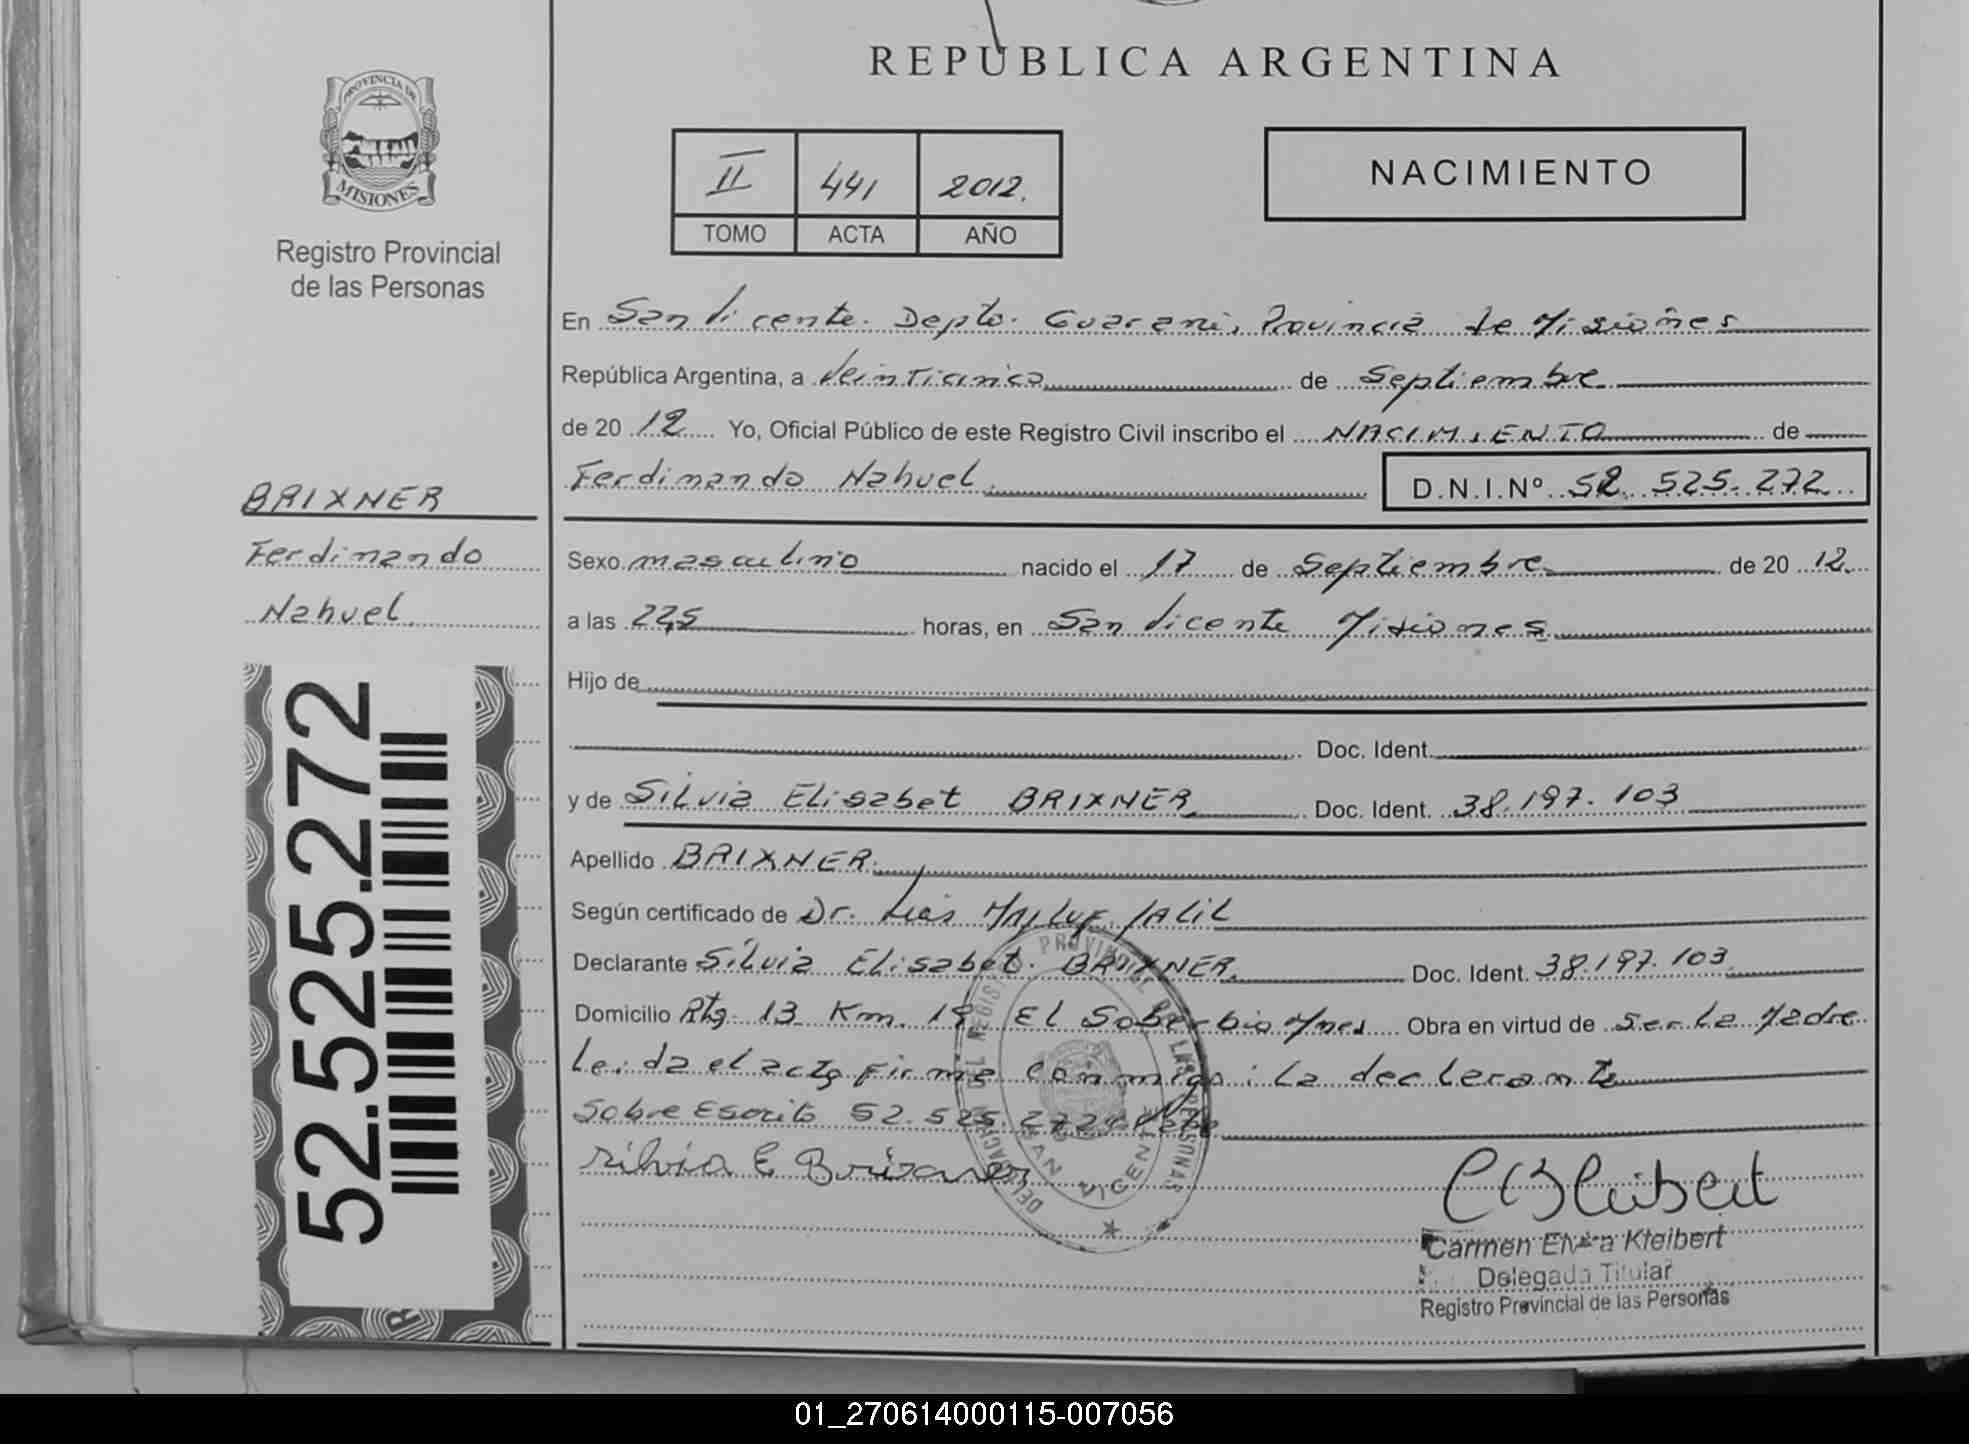 REPUBLICA ARGENTINA
PROVINCIA DE
MISIONES
Registro Provincial
de las Personas
II 441 2012.
TOMO ACTA AÑO
NACIMIENTO
En San Vicente. Depto. Guarani, Provincia de Misiones
República Argentina, a Veinticinco de Septiembre
de 20 12 Yo, Oficial Público de este Registro Civil inscribo el NACIMIENTO de
Ferdinando Nahuel D.N.I.Nº 52 525.272
BRIXNER
Ferdinando
Nahuel
52.525.272
Sexo masculino nacido el 17 de Septiembre de 20 12
a las 225 horas, en San Vicente Misiones
Hijo de
Doc. Ident.
y de Silvia Elisabet BRIXNER Doc. Ident. 38.197.103
Apellido BRIXNER
Según certificado de Dr. Luis JALIL
Declarante Silvia Elisabet BRIXNER Doc. Ident. 38.197.103
Domicilio Rta. 13 Km. 18 El Soberbio Mnes Obra en virtud de ser la Madre
Leida el acta firma conmigo: La declarante
Sobre Escrito 52.525.272 Vale
Silvia E Brixner
DELEGACION DEL REGISTRO PROVINCIAL DE LAS PERSONAS
SAN VICENTE
Carmen Elvira Kleibert
Delegada Titular
Registro Provincial de las Personas
01_270614000115-007056